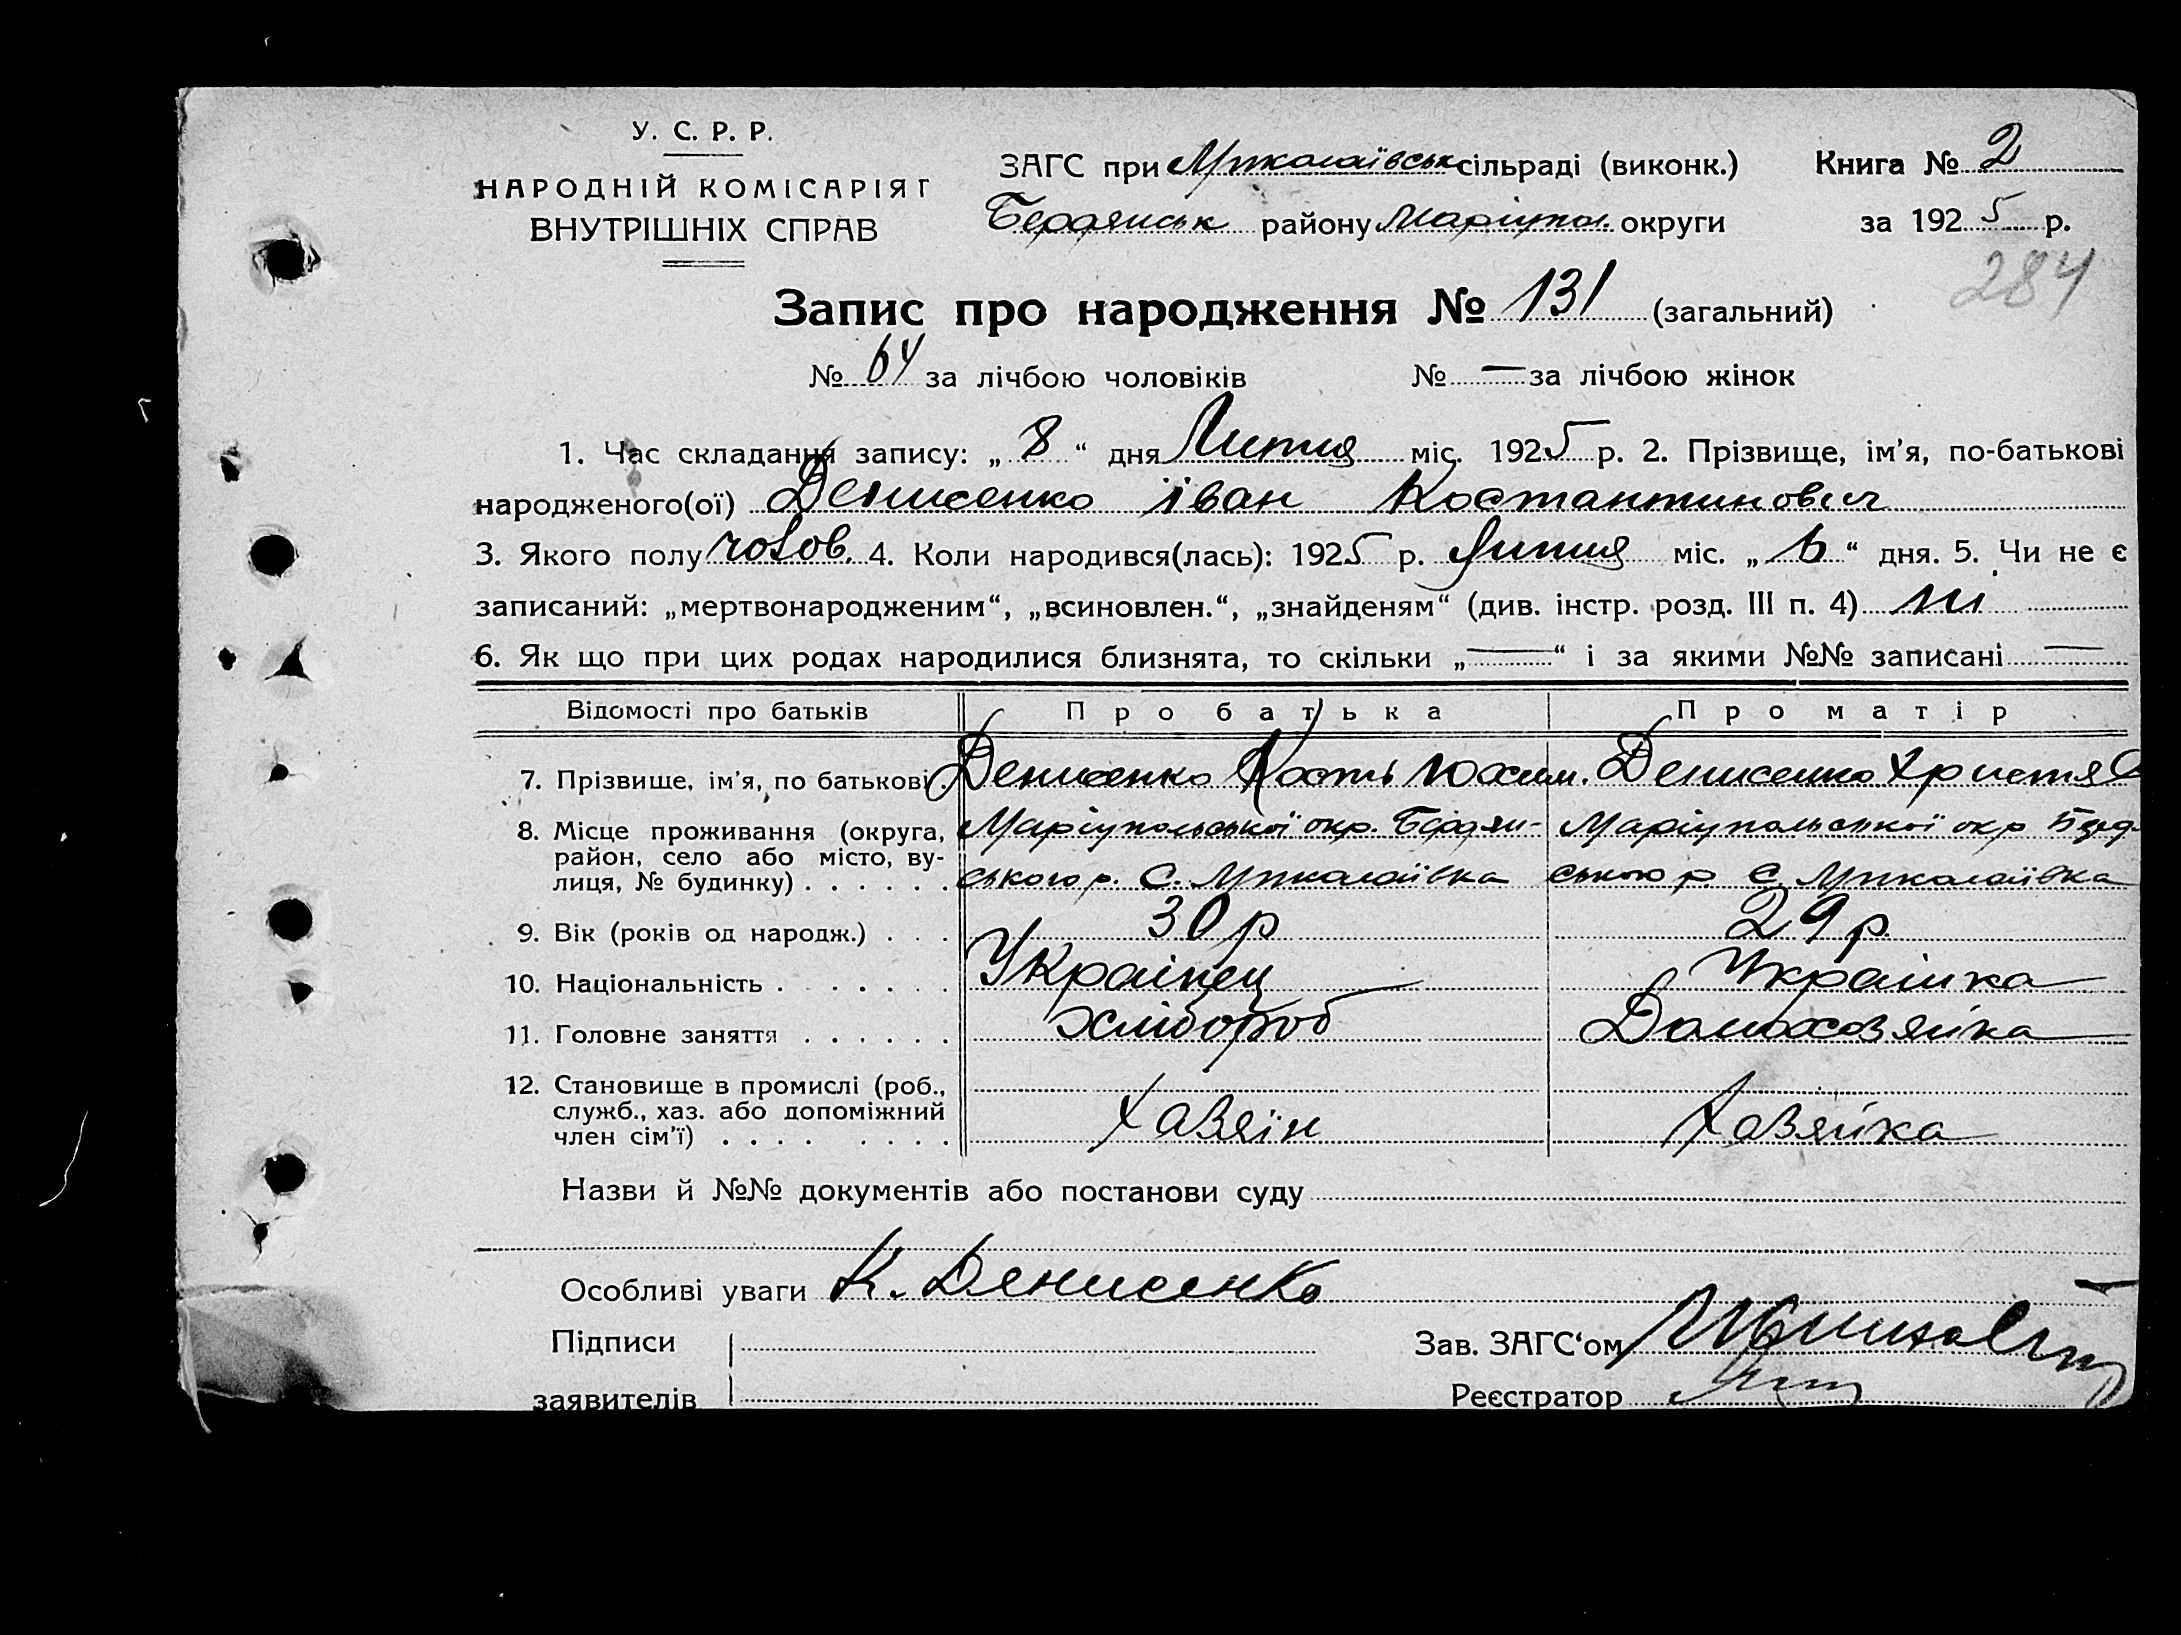 У. С. Р. Р.
НАРОДНІЙ КОМІСАРІЯТ
ВНУТРІШНІХ СПРАВ
ЗАГС при Миколаївськ сільраді (виконк.)
Бердянськ району Маріупол. округи
Книга № 2
за 1925 р.
284
Запис про народження № 131 (загальний)
№ 64 за лічбою чоловіків № — за лічбою жінок
1. Час складання запису: „ 8 “ дня Липня міс. 1925 р. 2. Прізвище, ім’я, по-батькові
народженого(ої) Денисенко Іван Костантинович
3. Якого полу чолов. 4. Коли народився(лась): 1925 р. Липня міс. „ 6 “ дня. 5. Чи не є
записаний: „мертвонародженим“, „всиновлен.“, „знайденям“ (див. інстр. розд. III п. 4) ні
6. Як що при цих родах народилися близнята, то скільки „ — “ і за якими №№ записані —
Відомості про батьків Про батька Про матір
7. Прізвище, ім’я, по батькові. Денисенко Кость Юхим. Денисенко Христя
8. Місце проживання (округа, Маріупольської окр. Бердян- Маріупольської окр Берд
район, село або місто, ву-
лиця, № будинку) . . . . . . ського р. С. Миколаївка ського р. С. Миколаївка
9. Вік (років од народж.) . . . 30 р 29 р.
10. Національність . . . . . . . Українец Украінка
11. Головне заняття . . . . . . Хлібороб Домохозяйка
12. Становище в промислі (роб.,
служб., хаз. або допоміжний
член сім’ї) . . . . . . . . Хазяїн Хазяйка
Назви й №№ документів або постанови суду
Особливі уваги К. Денисенко
Підписи
заявителів
Зав. ЗАГС‘ом
Реєстратор